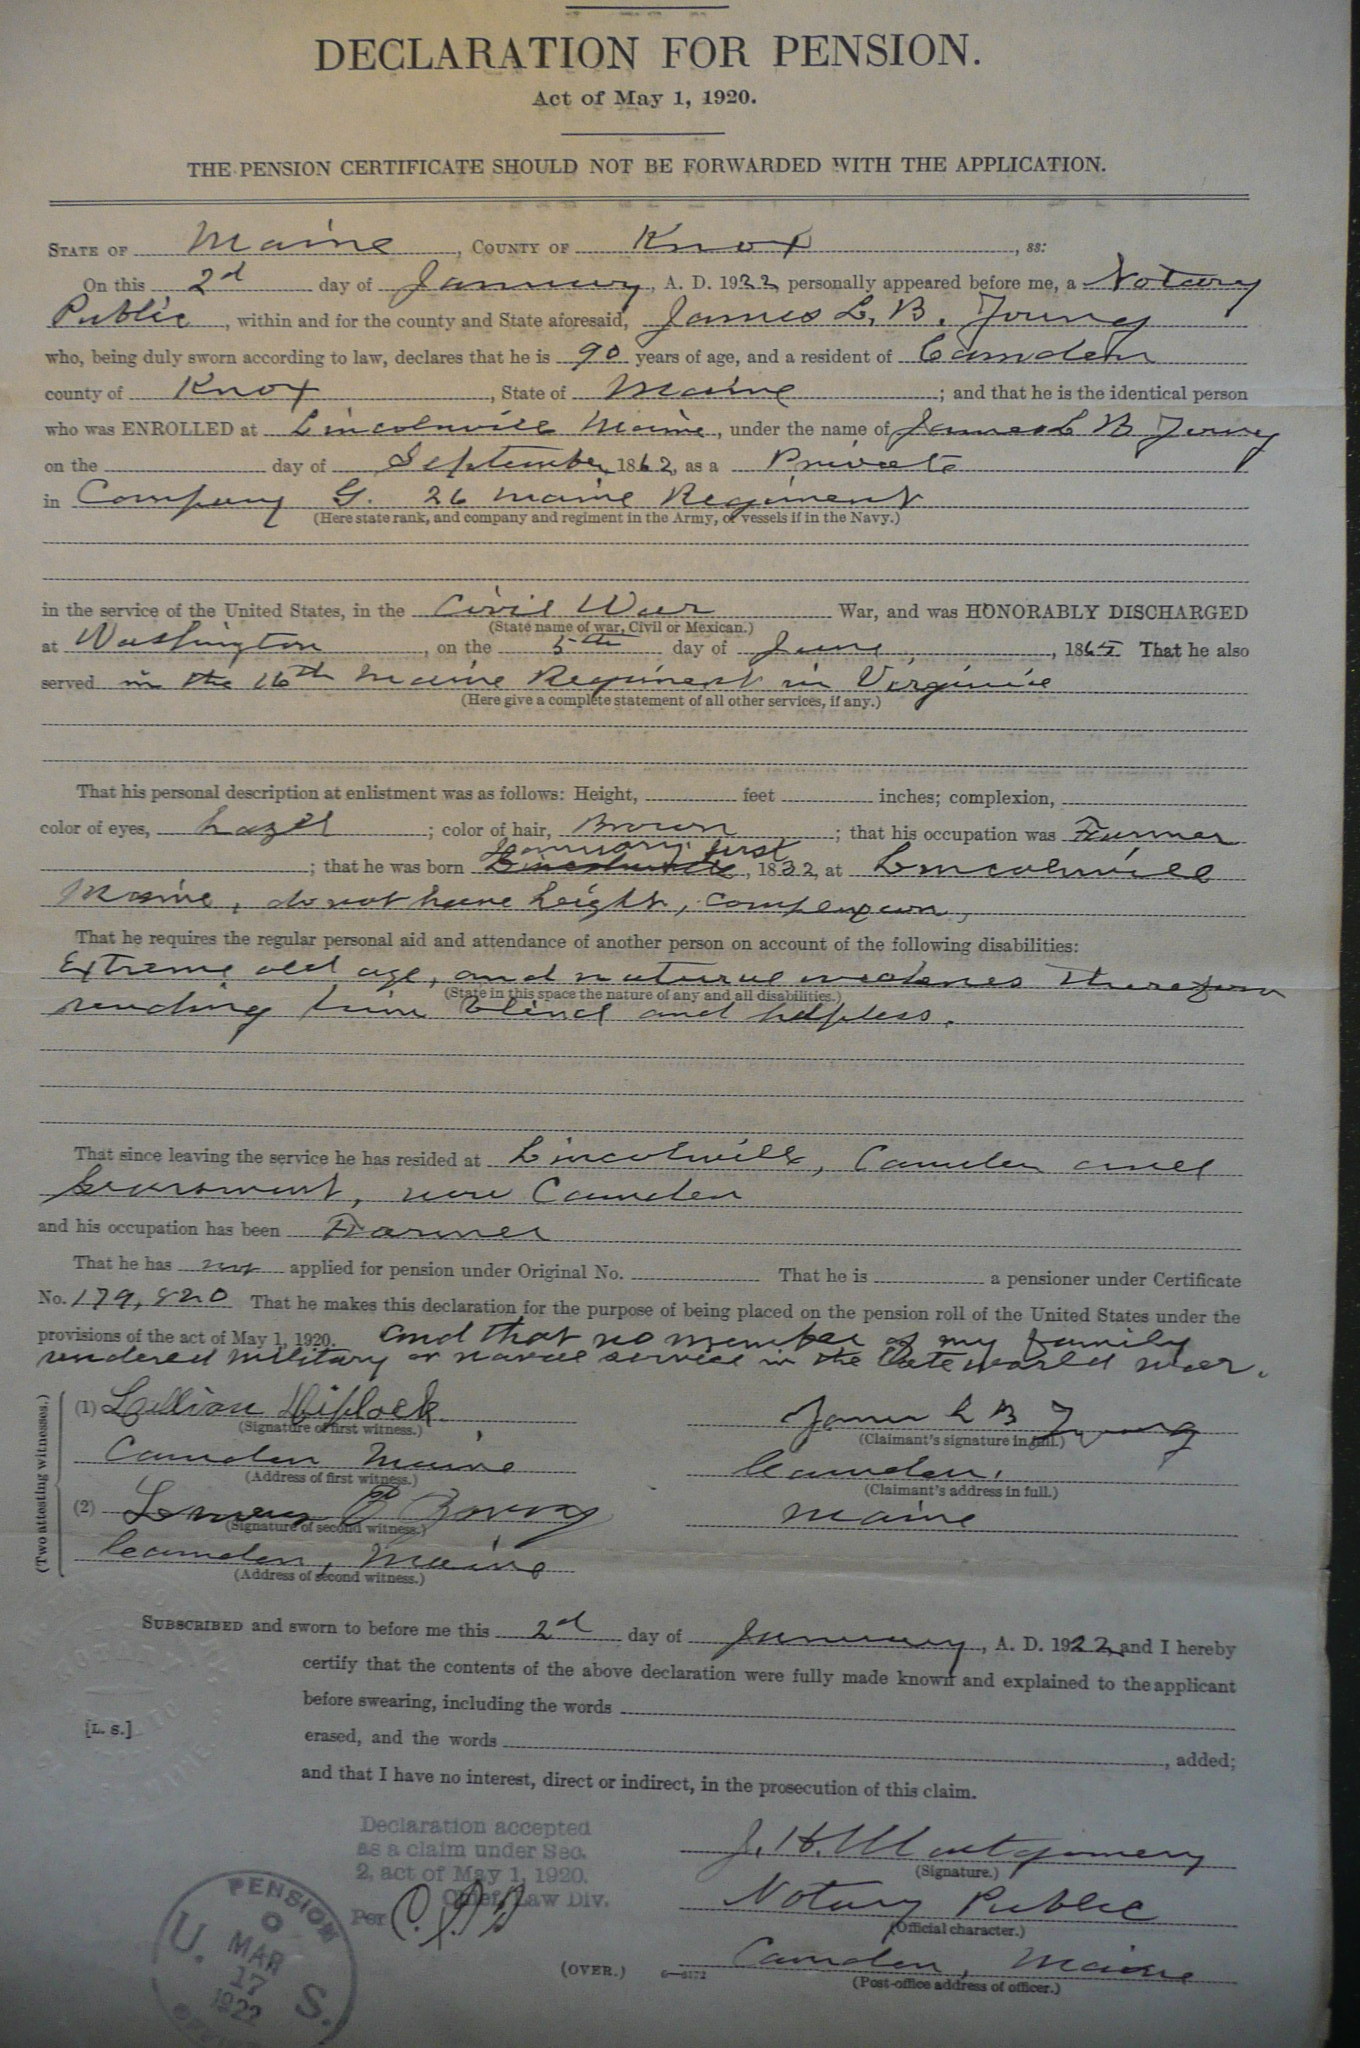 DECLARATION FOR PENSION.
Act of May 1, 1920.
THE PENSION CERTIFICATE SHOULD NOT BE FORWARDED WITH THE APPLICATION.
STATE OF Maine, COUNTY OF Knox, ss:
On this 2d day of January, A. D. 1922, personally appeared before me, a Notary
Public, within and for the county and State aforesaid, James L. B. Young
who, being duly sworn according to law, declares that he is 90 years of age, and a resident of Camden
county of Knox, State of Maine; and that he is the identical person
who was ENROLLED at Lincolnvill Maine, under the name of James L B Young
on the day of September, 1862, as a Private
in Company G. 26 Maine Regiment
(Here state rank, and company and regiment in the Army, or vessels if in the Navy.)
in the service of the United States, in the Civil War War, and was HONORABLY DISCHARGED
(State name of war, Civil or Mexican.)
at Washington, on the 5th day of June, 1865 That he also
served in the 16th Maine Regiment in Virginia
(Here give a complete statement of all other services, if any.)
That his personal description at enlistment was as follows: Height, feet inches; complexion,
color of eyes, hazel; color of hair, Brown; that his occupation was Farmer
January first
; that he was born Lincolnville, 1832, at Lincolnvill
Maine, do not have height, complexion,
That he requires the regular personal aid and attendance of another person on account of the following disabilities:
Extreme old age, and natural weakness therefrom
(State in this space the nature of any and all disabilities.)
rending him blind and helpless.
That since leaving the service he has resided at Lincolnville, Camden and
Searsmont, now Camden
and his occupation has been Farmer
That he has not applied for pension under Original No. That he is a pensioner under Certificate
No. 179,820 That he makes this declaration for the purpose of being placed on the pension roll of the United States under the
provisions of the act of May 1, 1920. and that no member of my family
rendered military or naval service in the late world war.
(Two attesting witnesses.)
(1) Lillian James L B Young
(Signature of first witness.) (Claimant's signature in full.)
Camden Maine Camden,
(Address of first witness.) (Claimant's address in full.)
(2) Maine
(Signature of second witness.)
Camden, Maine
(Address of second witness.)
SUBSCRIBED and sworn to before me this 2d day of January, A. D. 1922, and I hereby
certify that the contents of the above declaration were fully made known and explained to the applicant
before swearing, including the words
erased, and the words , added;
[L. S.]
and that I have no interest, direct or indirect, in the prosecution of this claim.
Declaration accepted
as a claim under Sec.
2, act of May 1, 1920.
Chief, Law Div.
Per
J. H. Montgomery
(Signature.)
Notary Public
(Official character.)
Camden, Maine
(Post-office address of officer.)
(OVER.) 6—6172
U. S. PENSION O
MAR
17
1922